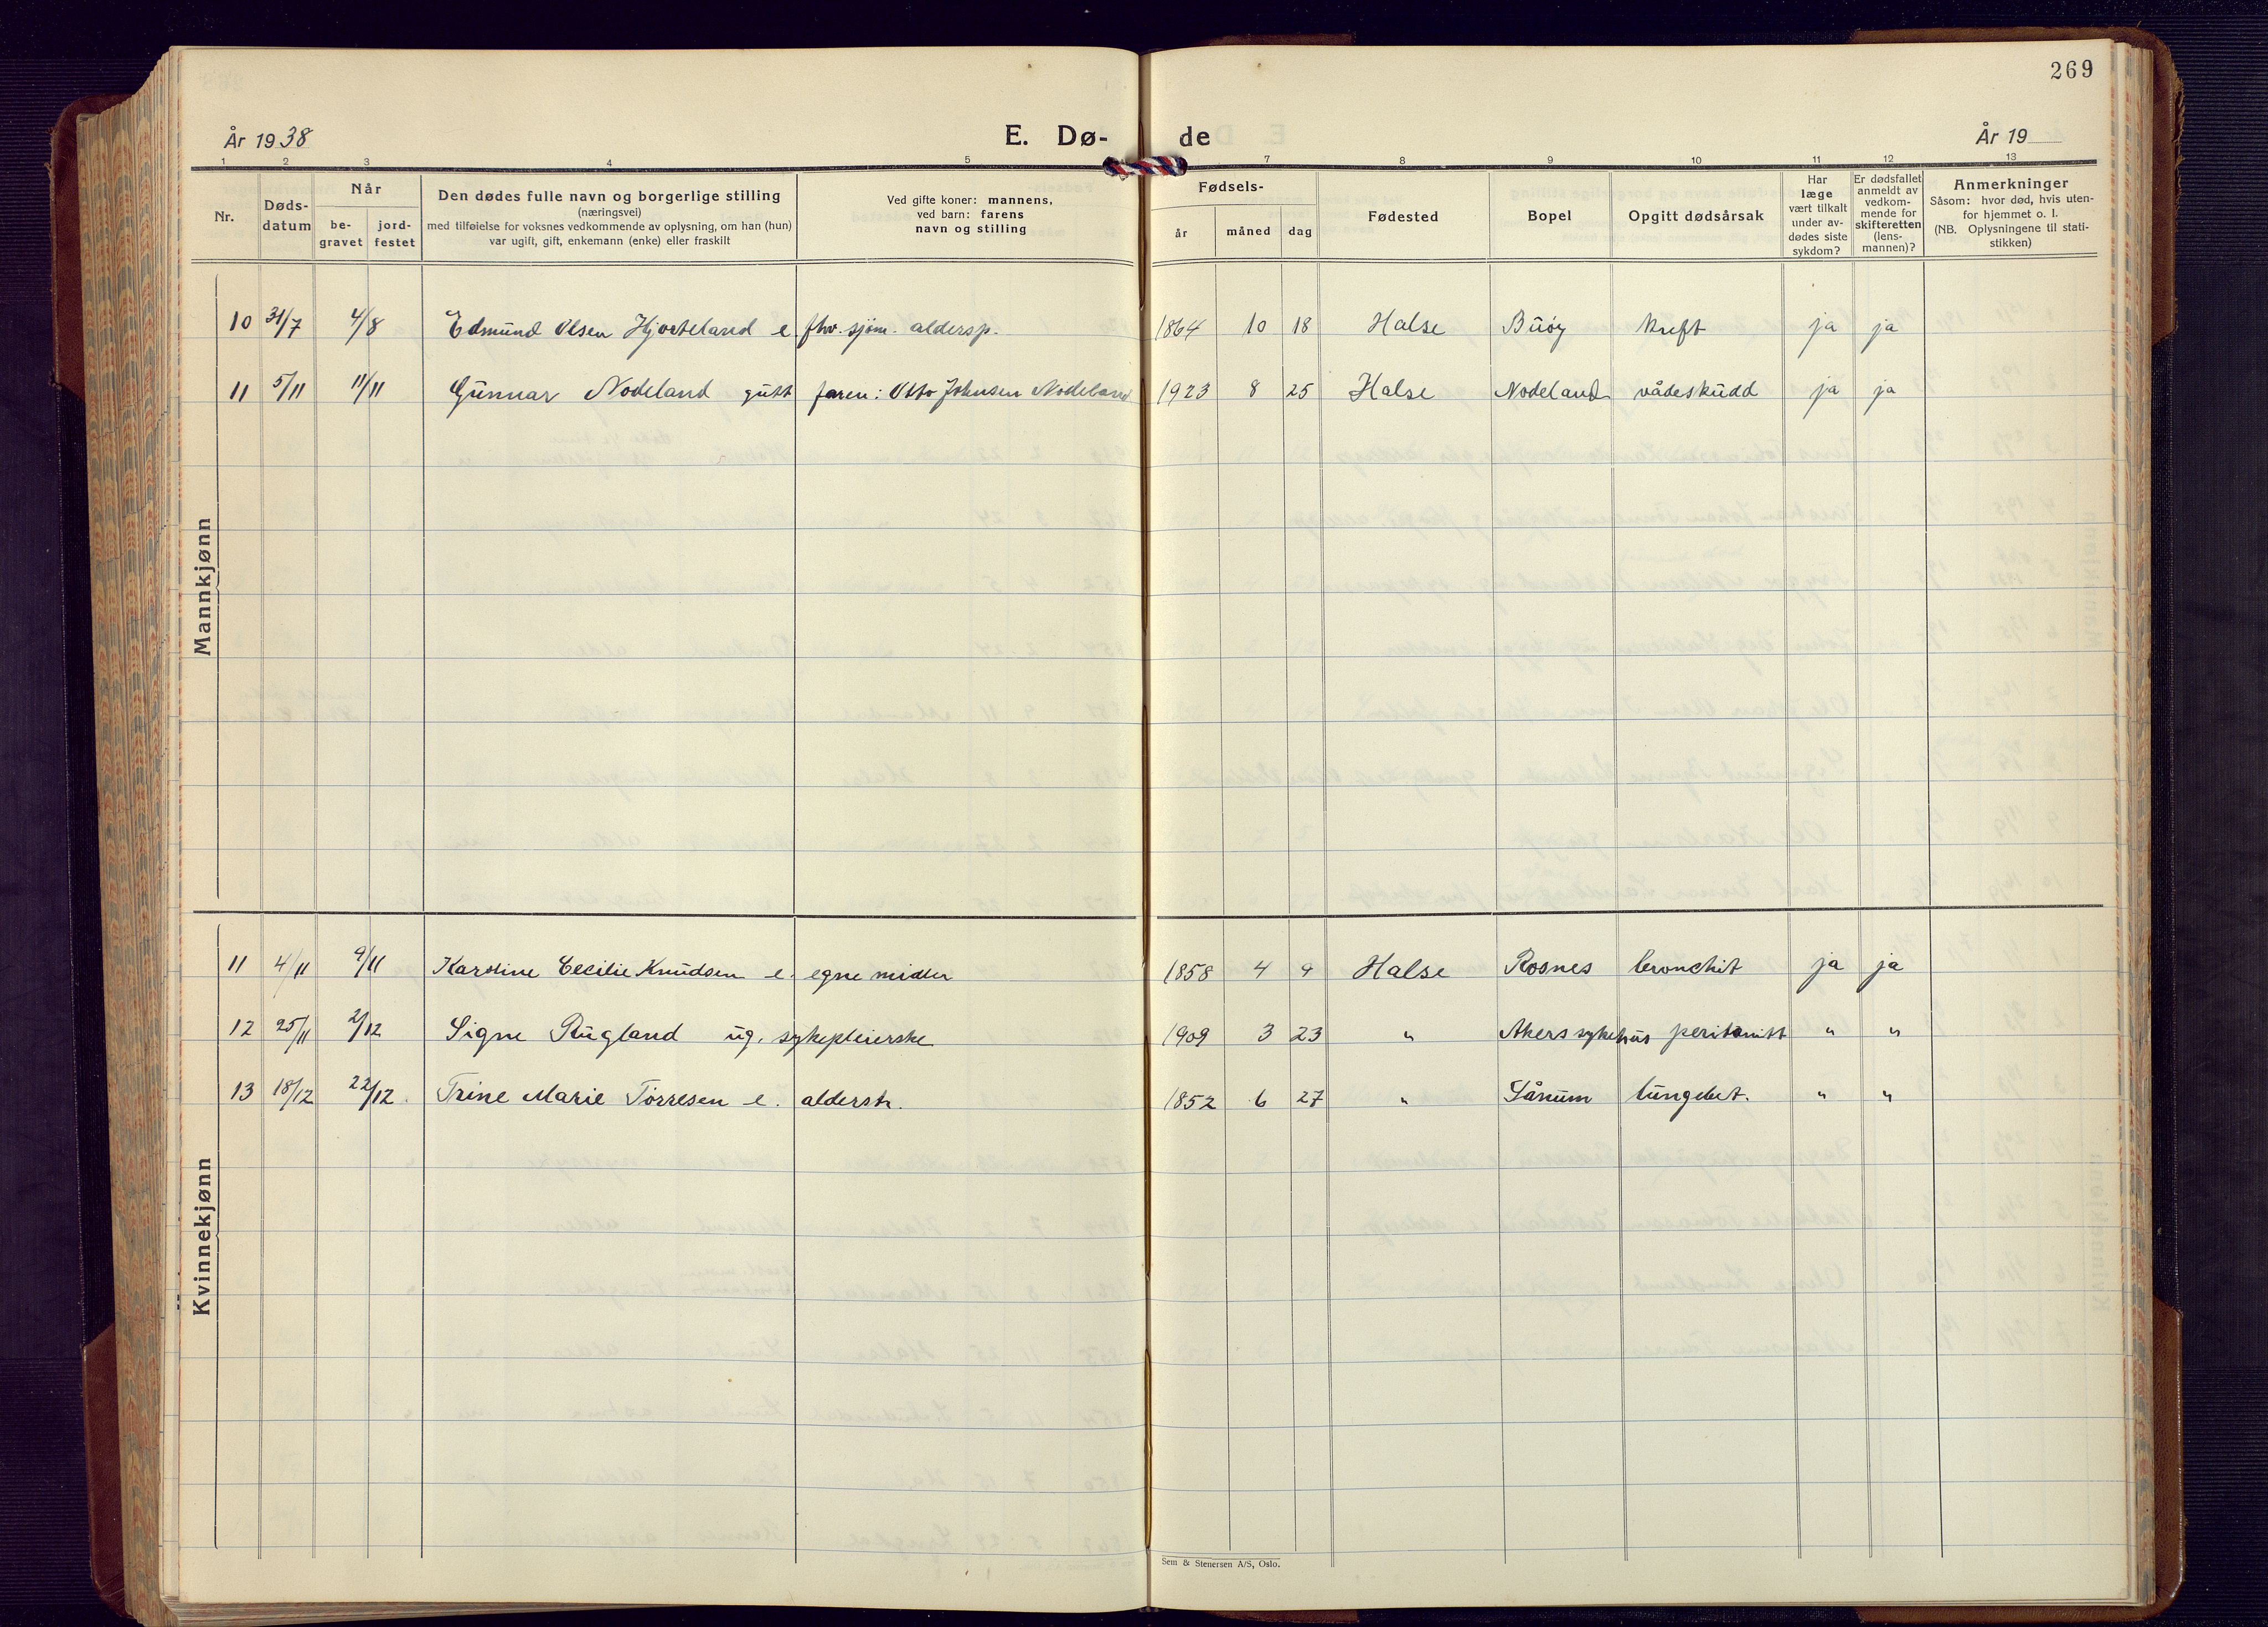 269
År 1938 E. Dø- de År 19
1 2 3 4 5 7 8 9 10 11 12 13
Nr. Døds-datum Når be-gravet jord-festet
Den dødes fulle navn og borgerlige stilling
(næringsvei)
med tilføielse for voksnes vedkommende av oplysning, om han (hun)
var ugift, gift, enkemann (enke) eller fraskilt
Ved gifte koner: mannens,
ved barn: farens
navn og stilling
Fødsels- år måned dag
Fødested
Bopel
Opgitt dødsårsak
Har læge vært tilkalt under av-dødes siste sykdom?
Er dødsfallet anmeldt av vedkom-mende for skifteretten (lens-mannen)?
Anmerkninger
Såsom: hvor død, hvis uten-
for hjemmet o. l.
(NB. Oplysningene til stati-
stikken)
Mannkjønn
10 31/7 4/8 Edmund Olsen Hjorteland e. fhv. sjøm. aldersp. 1864 10 18 Halse Buøy kreft ja ja
11 5/11 11/11 Gunnar Nodeland gutt faren: Otto Johnsen Nodeland 1923 8 25 Halse Nodeland vådeskudd ja ja
Kvinnekjønn
11 4/11 9/11 Karoline Cecilie Knudsen e. egne midler 1858 4 9 Halse Rosnes bronchit ja ja
12 25/11 2/12 Signe Rugland ug. sykepleierske 1909 3 23 " Akers sykehus peritonitt " "
13 18/12 22/12 Trine Marie Torresen e. alderstr. 1852 6 27 " Sånum lungebet. " "
Sem & Stenersen A/S, Oslo.